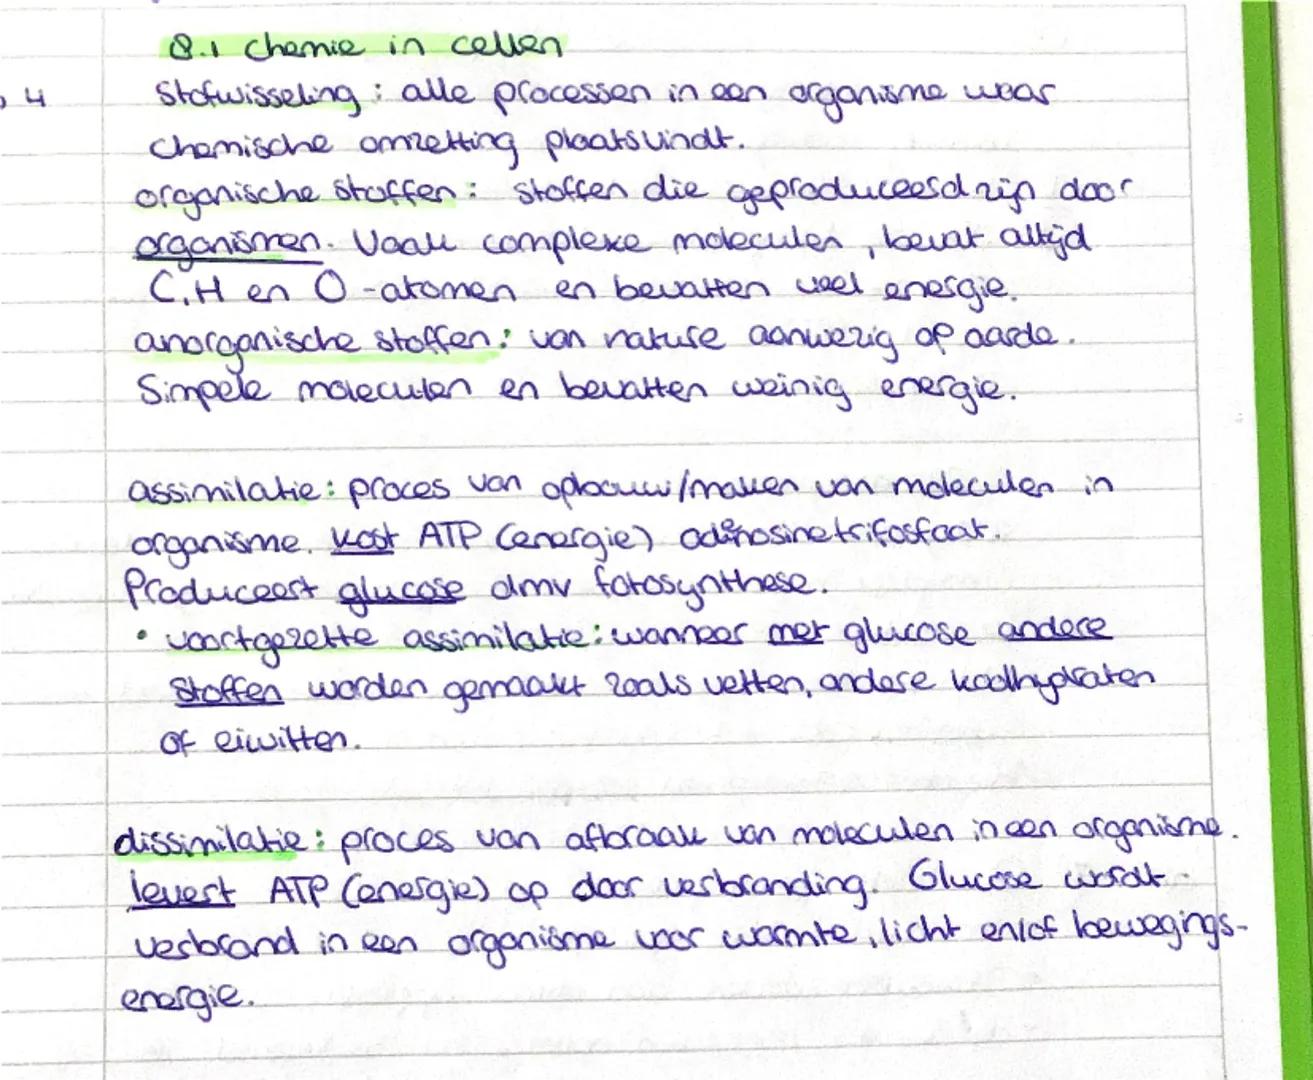 8.1 chemie in cellen
4
Stofwisseling: alle processen in een organisme waar
chemische omzetting plaatsvindt.
organische stoffen: stoffen die geproduceerd zijn door
organismen. Vaak complexe moleculen, bevat altijd
C, H en O-atomen en bevatten veel energie.
anorganische stoffen: van nature aanwezig op aarde.
Simpele moleculen en bevatten weinig energie.
assimilatie: proces van opbouw/maken van moleculen in
organisme. kost ATP (energie) adinosinetrifosfaat.
Produceert glucose dmv fotosynthese.
• voortgezette assimilatie: wanneer met glucose andere
stoffen worden gemaakt zoals vetten, andere koolhydraten
of eiwitten.
dissimilatie: proces van afbraak van moleculen in een organisme.
levert ATP (energie) op door verbranding. Glucose wordt
verbrand in een organisme voor warmte, licht en/of bewegings-
energie.